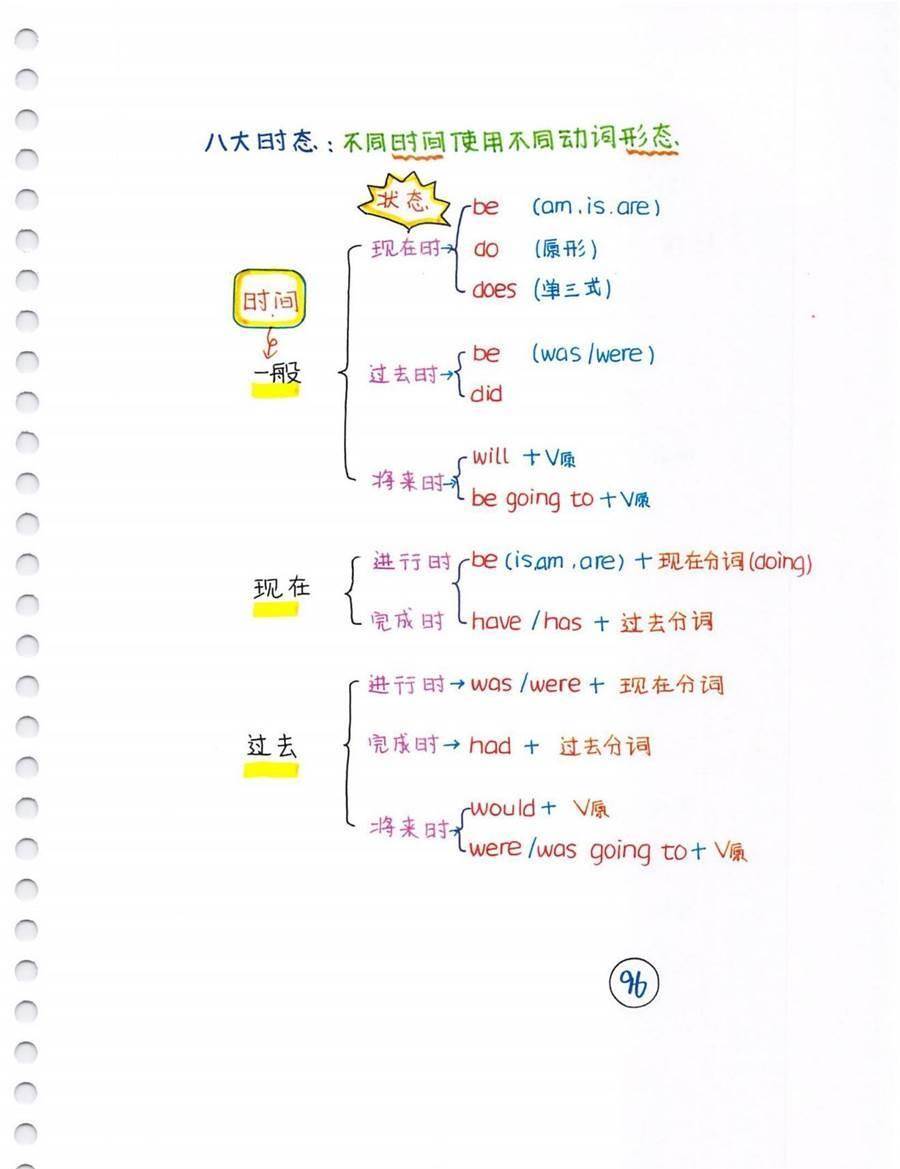 八大时态：不同时间使用不同动词形态.
状态
be (am.is.are)
现在时→ do (原形)
时间
does (单三式)
be (was/were)
一般
过去时→
did
will +V原
将来时→
be going to +V原
进行时 be (is,am,are) + 现在分词(doing)
现在
完成时 have /has + 过去分词
进行时→ was /were + 现在分词
过去
完成时→ had + 过去分词
would+ V原
将来时→
were/was going to+ V原
96